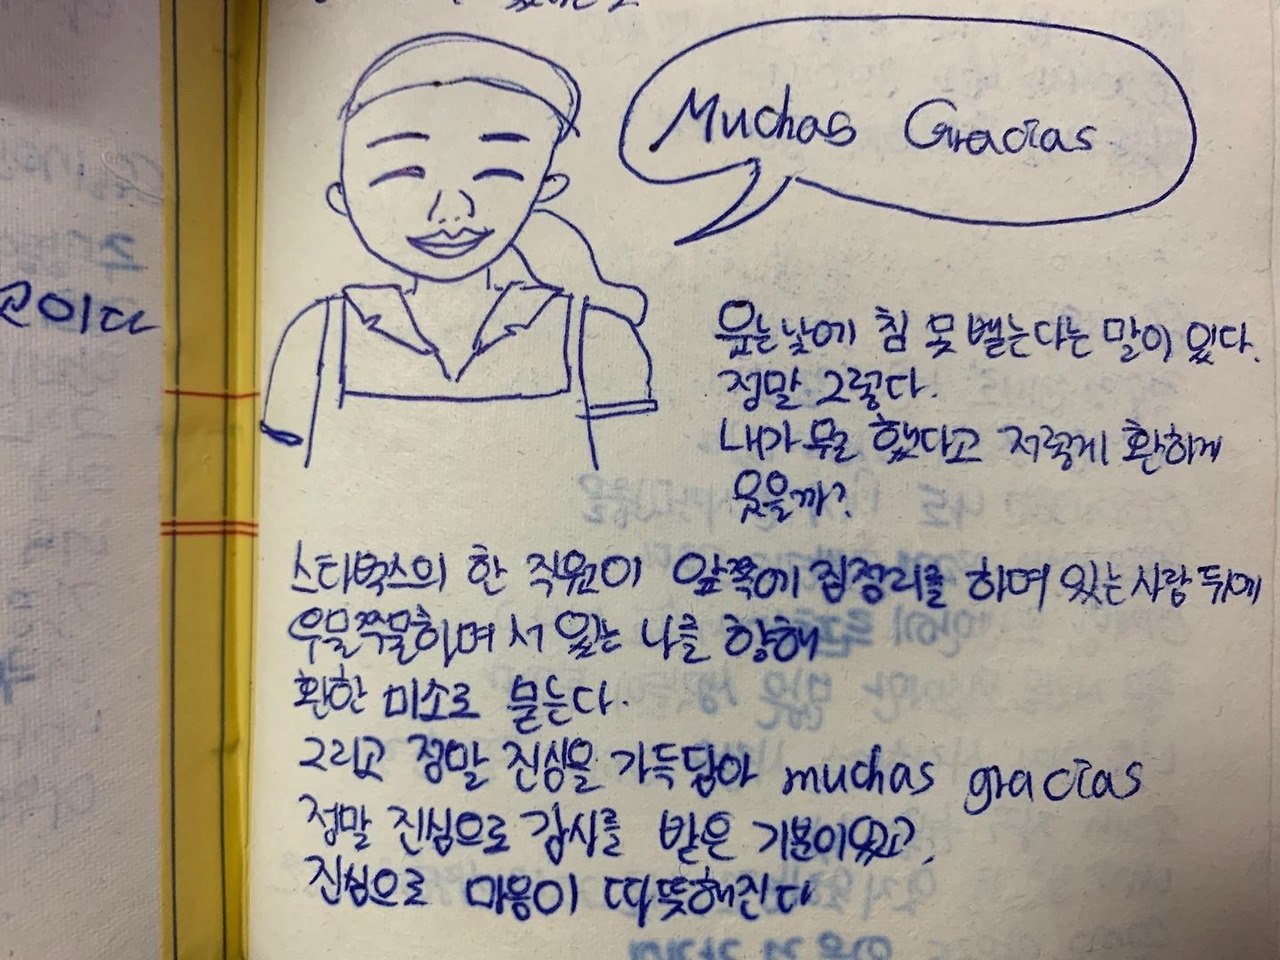 Muchas Gracias
고이다
웃는낯에 침 못 뱉는다는 말이 있다.
정말 그렇다.
내가 무얼 했다고 저렇게 환하게
웃을까?
스타벅스의 한 직원이 앞쪽에 짐정리를 하며 있는 사람 뒤에
우물쭈물하며 서 있는 나를 향해
환한 미소로 묻는다.
그리고 정말 진심을 가득담아 muchas gracias
정말 진심으로 감사를 받은 기분이었고,
진심으로 마음이 따뜻해진다